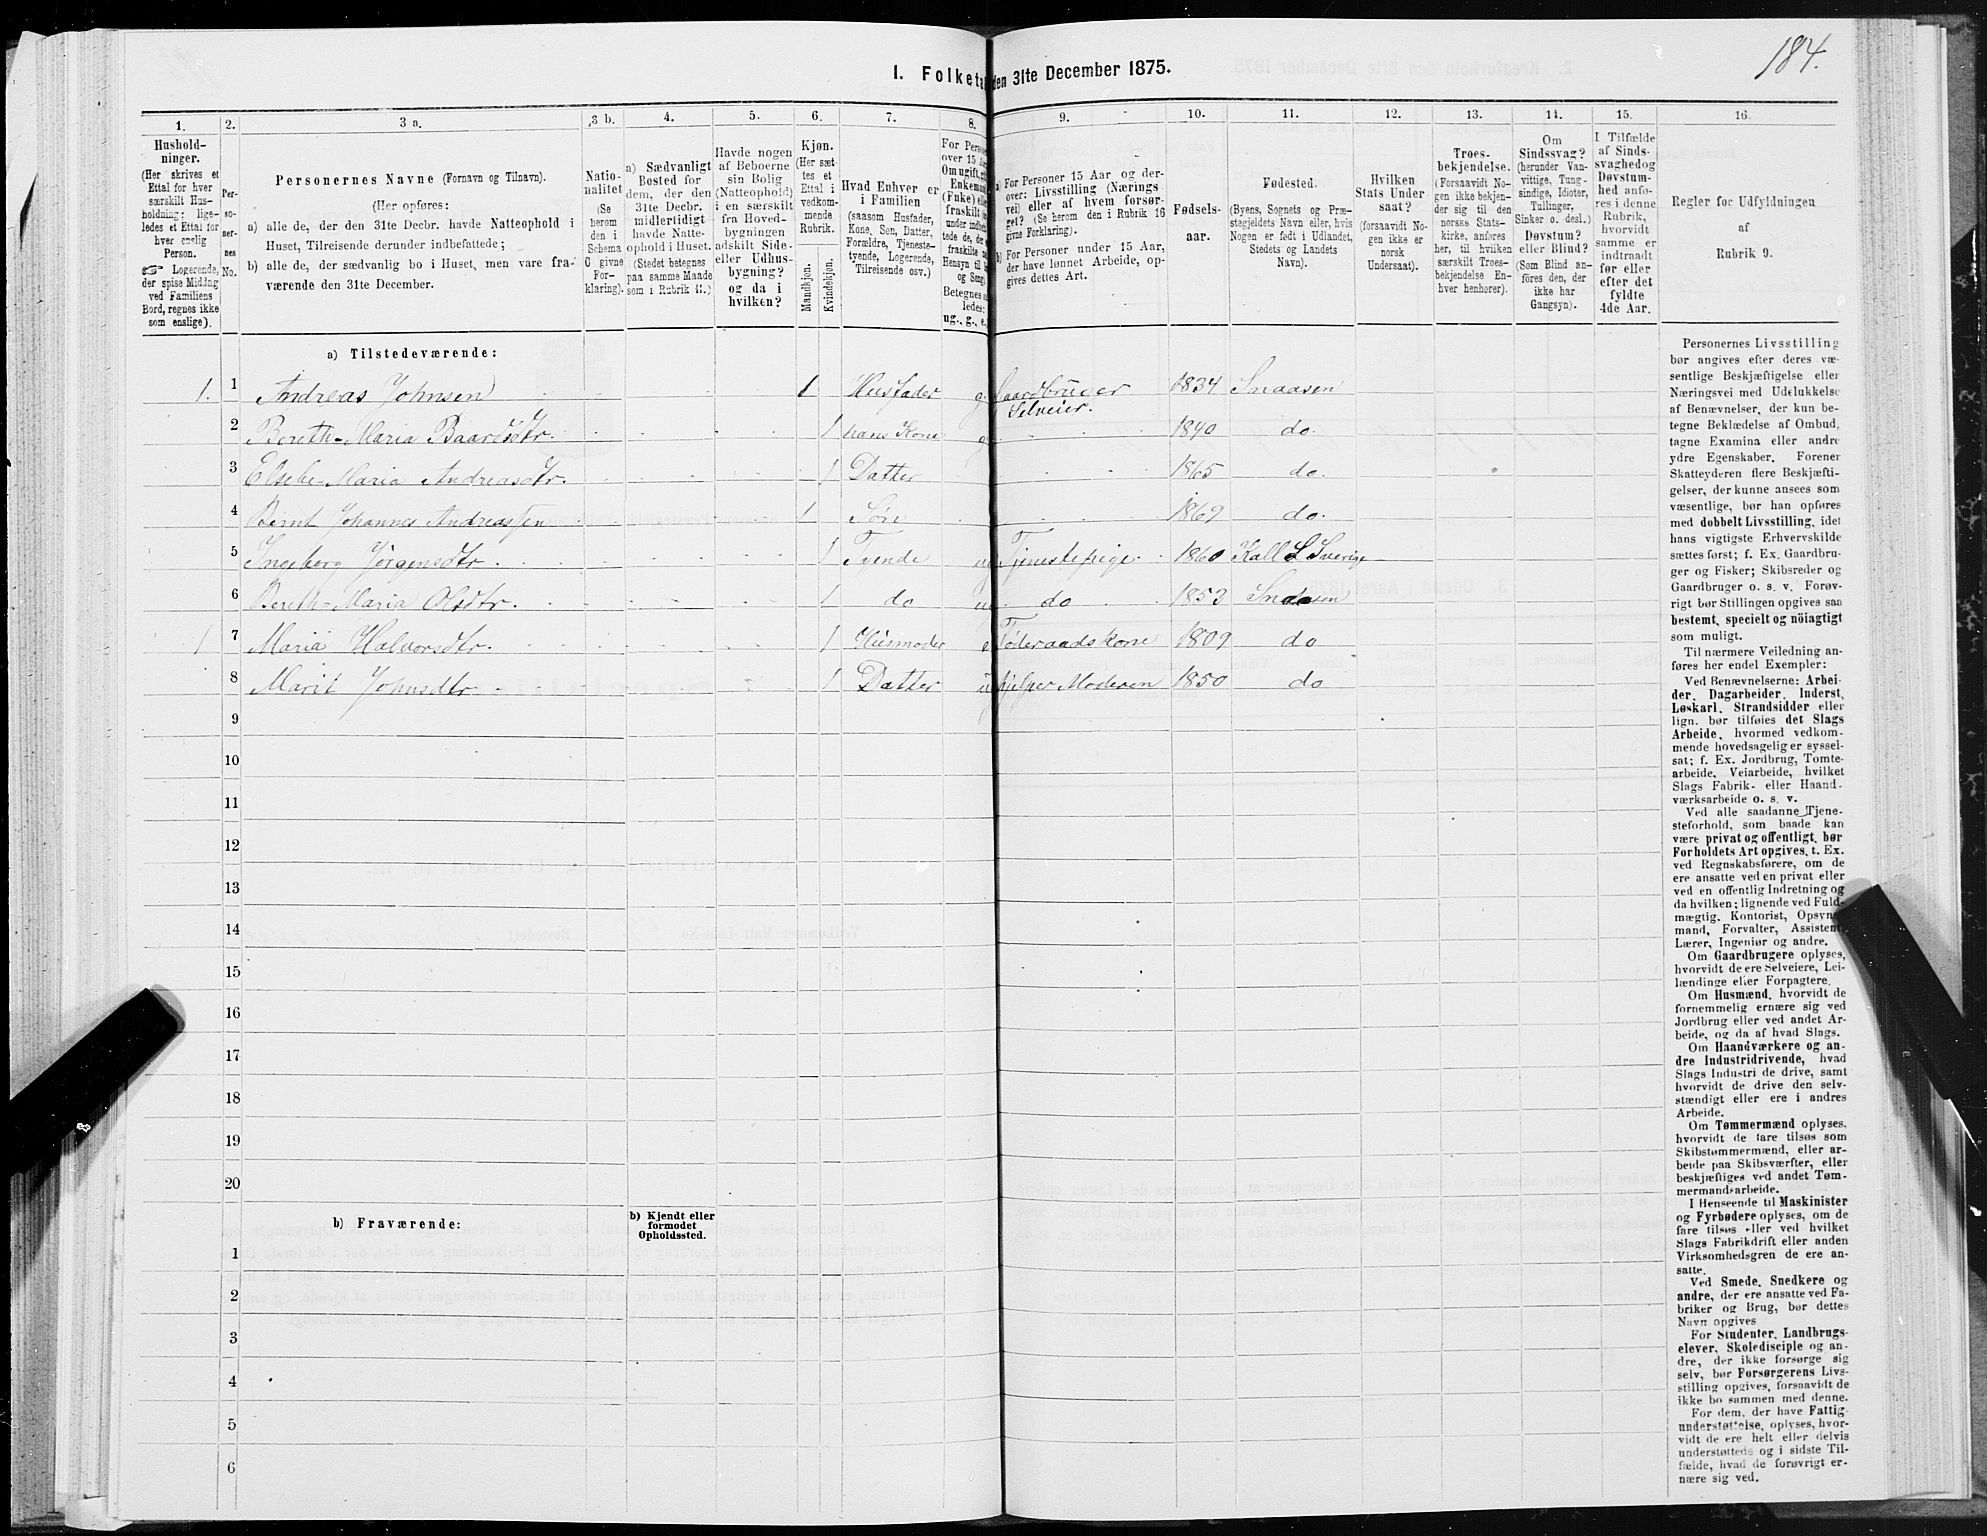 184.
1. Folketæ den 31te December 1875.
1. 2. 3 a. 3 b. 4. 5. 6. 7. 8. 9. 10. 11. 12. 13. 14. 15. 16.
Hushold-
ninger.
(Her skrives et
Ettal for hver
særskilt Hus-
holdning; lige-
ledes et Ettal for
hver enslig
Person.
☞ Logerende,
der spise Middag
ved Familiens
Bord, regnes ikke
som enslige).
Per-
so-
ner-
nes
No.
Personernes Navne (Fornavn og Tilnavn).
(Her opføres:
a) alle de, der den 31te Decbr. havde Natteophold i
Huset, Tilreisende derunder indbefattede;
b) alle de, der sædvanlig bo i Huset, men vare fra-
værende den 31te December.
Natio-
nalitet
(Se
herom
den i
Schema
C givne
For-
klaring).
a) Sædvanligt
Bosted for
dem, der den
31te Decbr.
midlertidigt
havde Natte-
ophold i Huset.
(Stedet betegnes
paa samme Maade
som i Rubrik 11.)
Havde nogen
af Beboerne
sin Bolig
(Natteophold)
i en særskilt
fra Hoved-
bygningen
adskilt Side-
eller Udhus-
bygning?
og da i
hvilken?
Kjøn.
(Her sæt-
tes et
Ettal i
vedkom-
mende
Rubrik.
Mandkjøn.
Kvindekjøn.
Hvad Enhver er
i Familien
(saasom Husfader,
Kone, Søn, Datter,
Forældre, Tjeneste-
tyende, Logerende,
Tilreisende osv.)
For Person
over 15 Aar
Om ugift, gi
Enkeman
(Enke) elle
fraskilt
Betegnes
ledes;
ug., g., e.
a) For Personer 15 Aar og der-
over: Livsstilling (Nærings
vei) eller af hvem forsør-
get? (Se herom den i Rubrik 16
givne Forklaring).
b) For Personer under 15 Aar,
der have lønnet Arbeide, op-
gives dettes Art.
Fødsels-
aar.
Fødested.
(Byens, Sognets og Præ-
stegjeldets Navn eller, hvis
Nogen er født i Udlandet,
Stedets og Landets
Navn).
Hvilken
Stats Under
saat?
(forsaavidt No-
gen ikke er
norsk
Undersaat).
Troes-
bekjendelse.
(Forsaavidt No-
gen ikke bekjen-
der sig til den
norske Stats-
kirke, anføres
her, til hvilken
særskilt Troes-
bekjendelse En-
hver henhører).
Om
Sindssvag?
(herunder Van-
vittige, Tung-
sindige, Idioter,
Tullinger,
Sinker o. desl.)
Døvstum?
eller Blind?
(Som Blind an-
føres den, der
ikke har
Gangsyn).
I Tilfælde
af Sinds-
svaghed og
Døvstum-
hed anfø-
res i denne
Rubrik,
hvorvidt
samme er
indtraadt
før eller
efter det
fyldte
4de Aar.
Regler for Udfyldningen
af
Rubrik 9.
a) Tilstedeværende:
1. 1 Andreas Johnsen 1 Husfader g. Gaardbruger Selveier. 1834 Snaasen
2 Bereth-Maria Baardsdtr. 1 hans Kone g 1840 do.
3 Elsebe-Maria Andreasdtr. 1 Datter 1865 do.
4 Bernt Johannes Andreassen 1 Søn 1869 do.
5 Ingeborg Jørgensdtr. 1 Tyende ug Tjenestepige 1860 Kall S Sverige
6 Bereth-Maria Olsdtr. 1 do u do 1853 Snaasen
1 7 Maria Halvorsdtr. 1 Husmoder e Føderaadskone 1809 do
8 Marit Johnsdtr 1 Datter ug hjelper Moderen 1850 do
9
10
11
12
13
14
15
16
17
18
19
20
b) Fraværende:
b) Kjendt eller
formodet
Opholdssted.
1
2
3
4
5
6
Personernes Livsstilling
bør angives efter deres væ-
sentlige Beskjæftigelse eller
Næringsvei med Udelukkelse
af Benævnelser, der kun be-
tegne Beklædelse af Ombud,
tagne Examina eller andre
ydre Egenskaber. Forener
Skatteyderen flere Beskjæfti-
gelser, der kunne ansees som
væsentlige, bør han opføres
med dobbelt Livsstilling, idet
hans vigtigste Erhvervskilde
sættes først; f. Ex. Gaardbru-
ger og Fisker; Skibsreder og
Gaardbruger o. s. v. Forøv-
rigt bør Stillingen opgives saa
bestemt, specielt og nöiagtigt
som muligt.
Til nærmere Veiledning an-
føres her endel Exempler:
Ved Benævnelserne: Arbei-
der, Dagarbeider, Inderst,
Løskarl, Strandsidder eller
lign. bør tilføies det Slags
Arbeide, hvormed vedkom-
mende hovedsagelig er syssel-
sat; f. Ex. Jordbrug, Tomte-
arbeide, Veiarbeide, hvilket
Slags Fabrik- eller Haand-
værksarbeide o. s. v.
Ved alle saadanne Tjene-
steforhold, som baade kan
være privat og offentligt, bør
Forholdets Art opgives, t. Ex.
ved Regnskabsførere, om de
ere ansatte ved en privat eller
ved en offentlig Indretning og
da hvilken; lignende ved Fuld-
mægtig, Kontorist, Opsyns-
mand, Forvalter, Assistent,
Lærer, Ingeniør og andre.
Om Gaardbrugere oplyses,
hvorvidt de ere Selveiere, Lei-
lændinge eller Forpagtere.
Om Husmænd, hvorvidt de
fornemmelig ernære sig ved
Jordbrug eller ved andet Ar-
beide, og da af hvad Slags.
Om Haandværkere og an-
dre Industridrivende, hvad
Slags Industri de drive, samt
hvorvidt de drive den selv-
stændigt eller ere i andres
Arbeide.
Om Tømmermænd oplyses,
hvorvidt de fare tilsøs som
Skibstømmermænd, eller ar-
beide paa Skibsværfter, eller
beskjæftiges ved andet Tøm-
mermandsarbeide.
I Henseende til Maskinister
og Fyrbødere oplyses, om de
fare tilsøs eller ved hvilket
Slags Fabrikdrift eller anden
Virksomhedsgren de ere an-
satte.
Ved Smede, Snedkere og
andre, der ere ansatte ved Fa-
briker og Brug, bør dettes
Navn opgives
For Studenter, Landbrugs-
elever, Skoledisciple og an-
dre, der ikke forsørge sig
selv, bør Forsørgerens Livs-
stilling opgives, forsaavidt de
ikke bo sammen med denne.
For dem, der have Fattig-
understøttelse, oplyses, hvor-
vidt de ere helt eller delvis
understøttede og i sidste Til-
fælde, hvad de forøvrigt er-
nære sig ved.